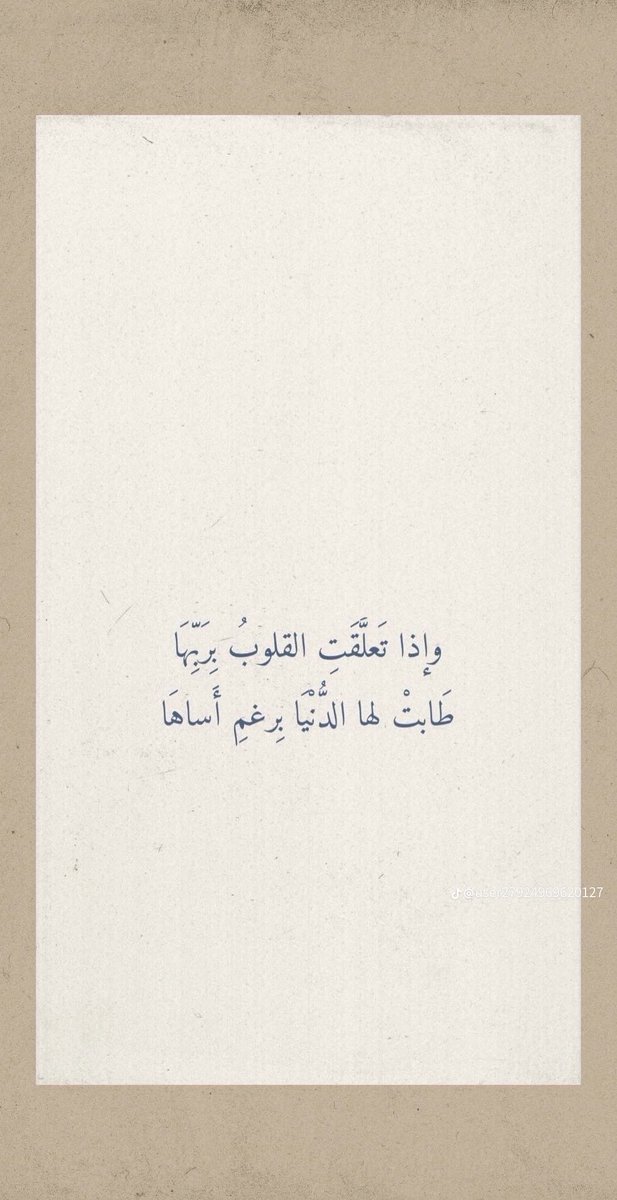 وإذا تَعلَّقَتِ القلوبُ بِرَبِّهَا
طَابتْ لها الدُّنْيَا بِرغمِ أَساهَا
@user27924969620127